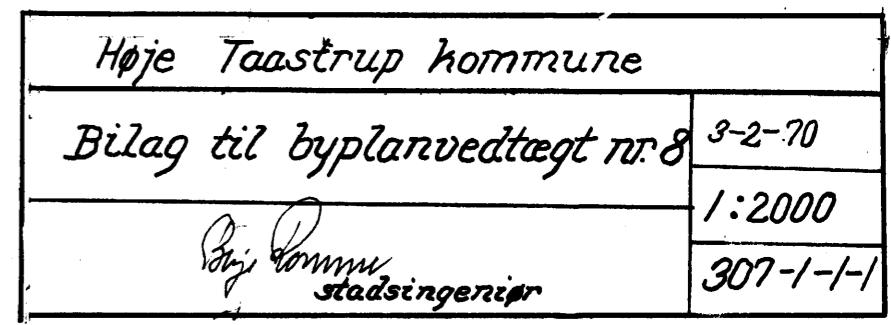 Høje Taastrup kommune
Bilag til byplanvedtægt nr. 8
3-2-70
1:2000
stadsingeniør
307-1-1-1